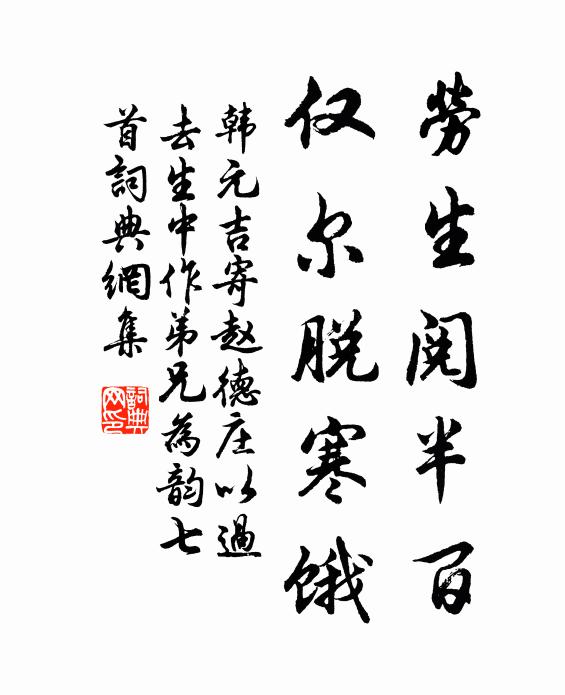 劳生阅半百
仅尔脱寒饿
韩元吉寄赵德庄以過
去生中作弟兄為韵七
首詞典網集
詞典
网印